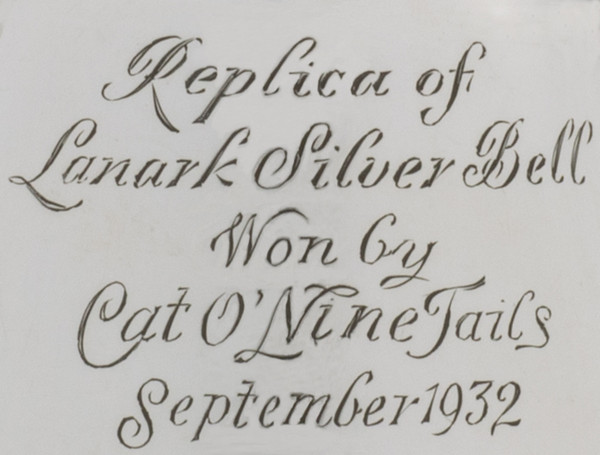 Replica of
Lanark Silver Bell
Won by
Cat O'Nine Tails
September 1932